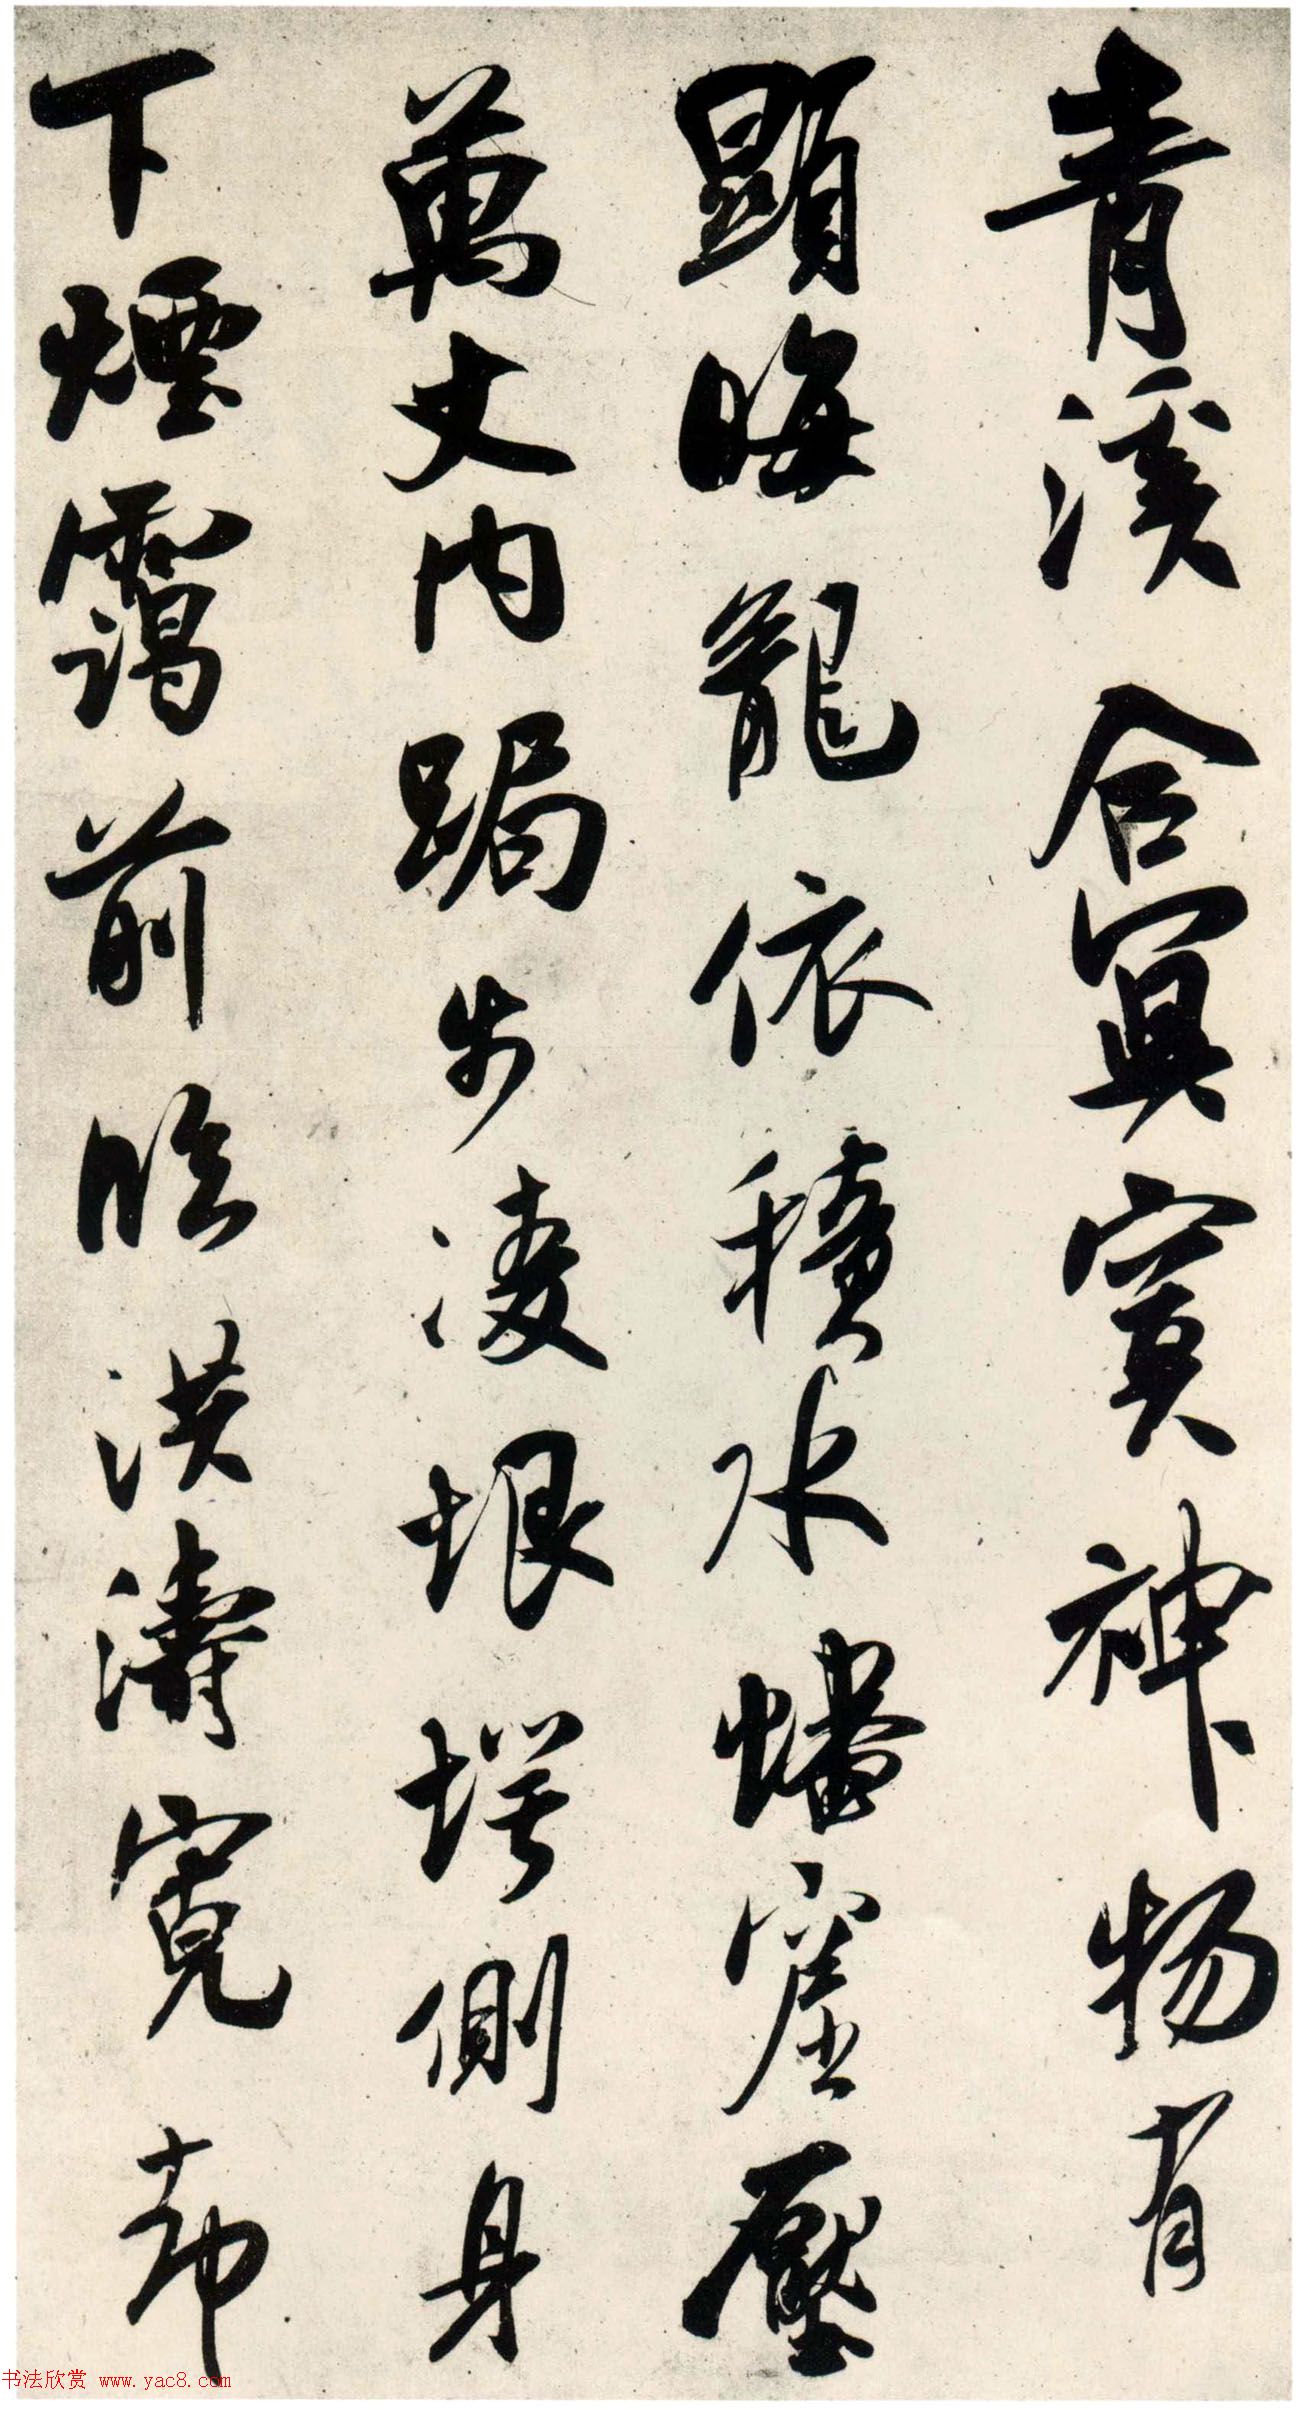 青溪合冥寞神物有
顯晦龍依積水蟠窟壓
萬丈內跼步凌垠堮側身
下煙靄前臨洪濤寬却
书法欣赏 www.yac8.com